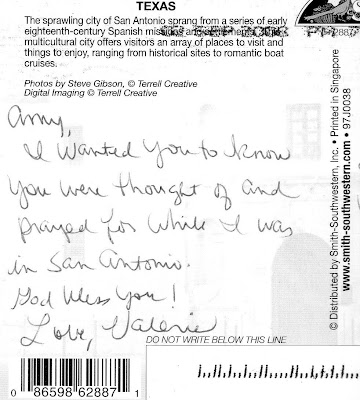 TEXAS
The sprawling city of San Antonio sprang from a series of early
eighteenth-century Spanish missions and settlements.
multicultural city offers visitors an array of places to visit and
things to enjoy, ranging from historical sites to romantic boat
cruises.
Photos by Steve Gibson, © Terrell Creative
Digital Imaging © Terrell Creative
Amy,
I wanted you to know
you were thought of and
prayed for while I was
in San Antonio.
God Bless You!
Love, Valerie
DO NOT WRITE BELOW THIS LINE
0 86598 62887 1
© Distributed by Smith-Southwestern, Inc. • Printed in Singapore
www.smith-southwestern.com • 97J0038
62887